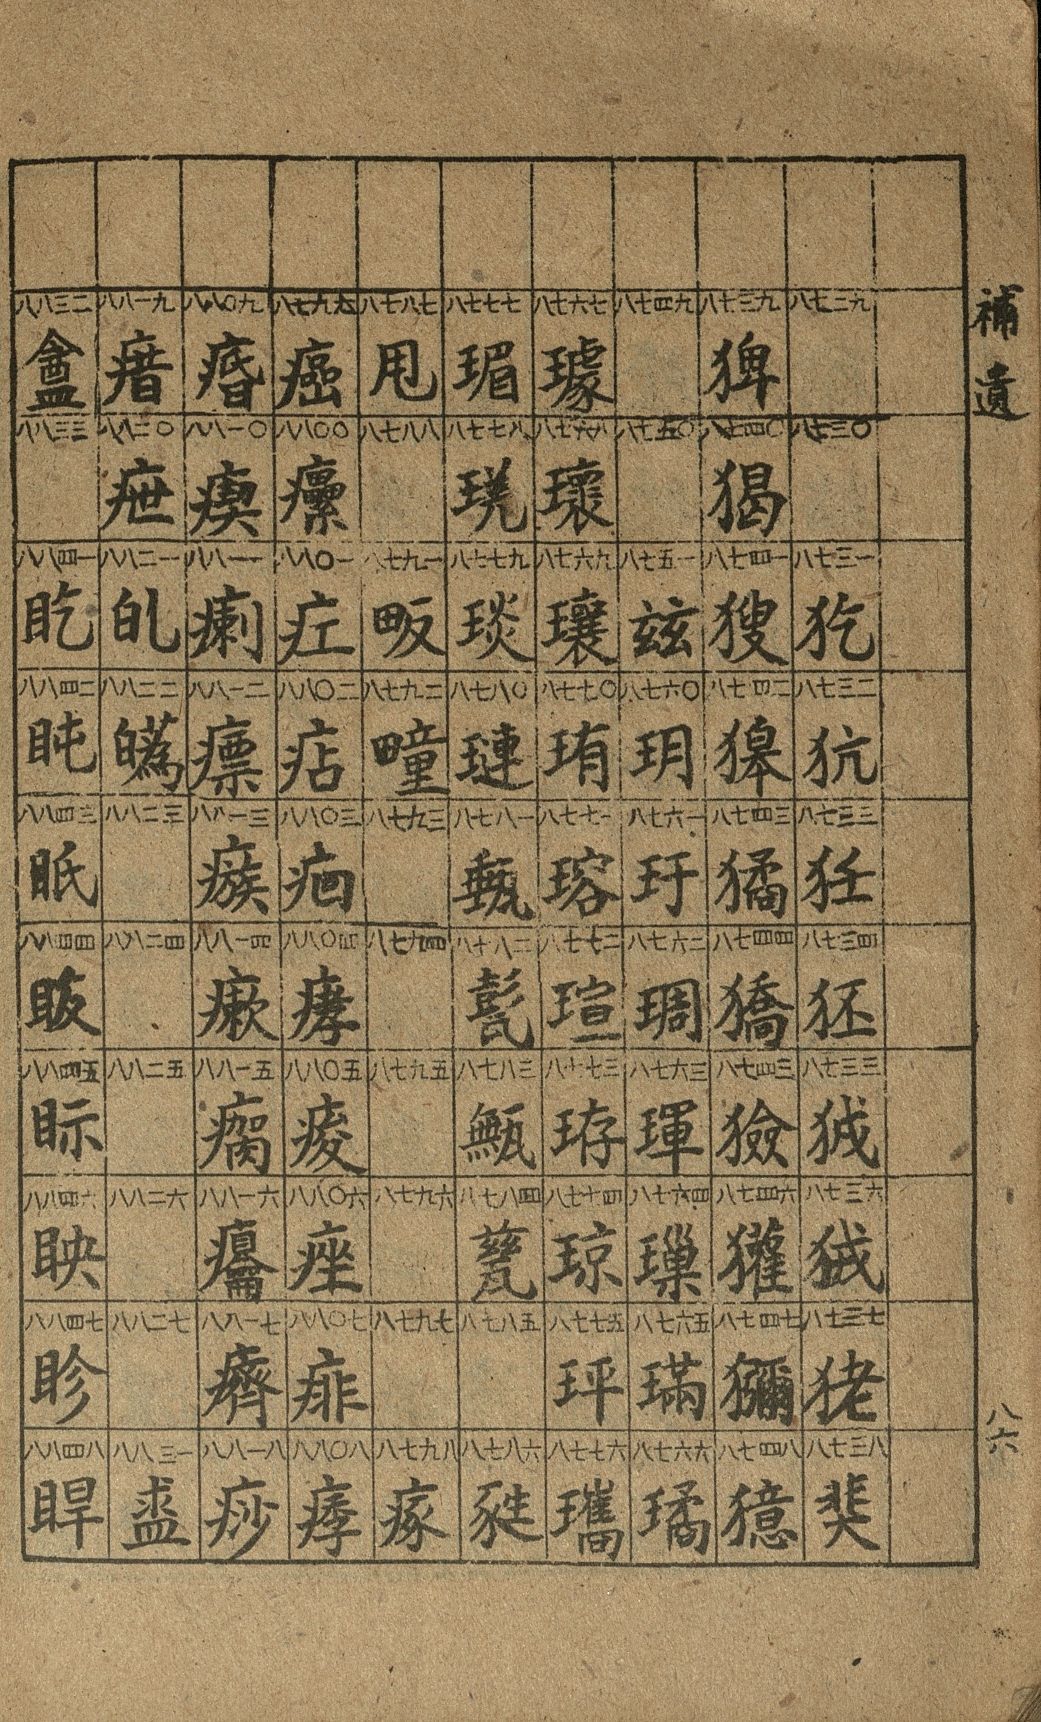 補遺
八六
八七二九
八七三〇
八七三一 犵
八七三二 犺
八七三三
八七三四 狉
八七三三 狘
八七三六 狨
八七三七 狫
八七三八 猆
八七三九 猈
八七四〇 猲
八七四一 獀
八七四二 獋
八七四三 獝
八七四四 獢
八七四三 獫
八七四六 獾
八七四七 獮
八七四八
八七四九
八七五〇
八七五一 玆
八七六〇 玥
八七六一 玗
八七六二 琱
八七六三 琿
八七六四 璅
八七六五 璊
八七六六 璚
八七六七 璩
八七六八 瓌
八七六九 瓖
八七七〇 珛
八七七一 瑢
八七七二 瑄
八七七三 珔
八七七四 琼
八七七五 玶
八七七六 瓗
八七七七 瑂
八七七八
八七七九 琰
八七八〇 璉
八七八一 甄
八七八二 甏
八七八三 甒
八七八四 甆
八七八五
八七八六 甤
八七八七 甩
八七八八
八七九一 畈
八七九二 疃
八七九三
八七九四
八七九五
八七九六
八七九七
八七九八 瘃
八七九九
八八〇〇 癳
八八〇一 疘
八八〇二 痁
八八〇三 痐
八八〇四 痚
八八〇五 痠
八八〇六 痤
八八〇七 痱
八八〇八
八八〇九 痻
八八一〇 瘈
八八一一 瘌
八八一二 瘭
八八一三 瘯
八八一四 瘷
八八一五 瘸
八八一六 癟
八八一七 癠
八八一八 痧
八八一九 瘖
八八二〇 疶
八八二一 癿
八八二二
八八二三
八八二四
八八二五
八八二六
八八二七
八八三一
八八三二 盦
八八三三
八八四一 盵
八八四二 盹
八八四三 眡
八八四四 眅
八八四五 眎
八八四六 眏
八八四七 眕
八八四八 睅